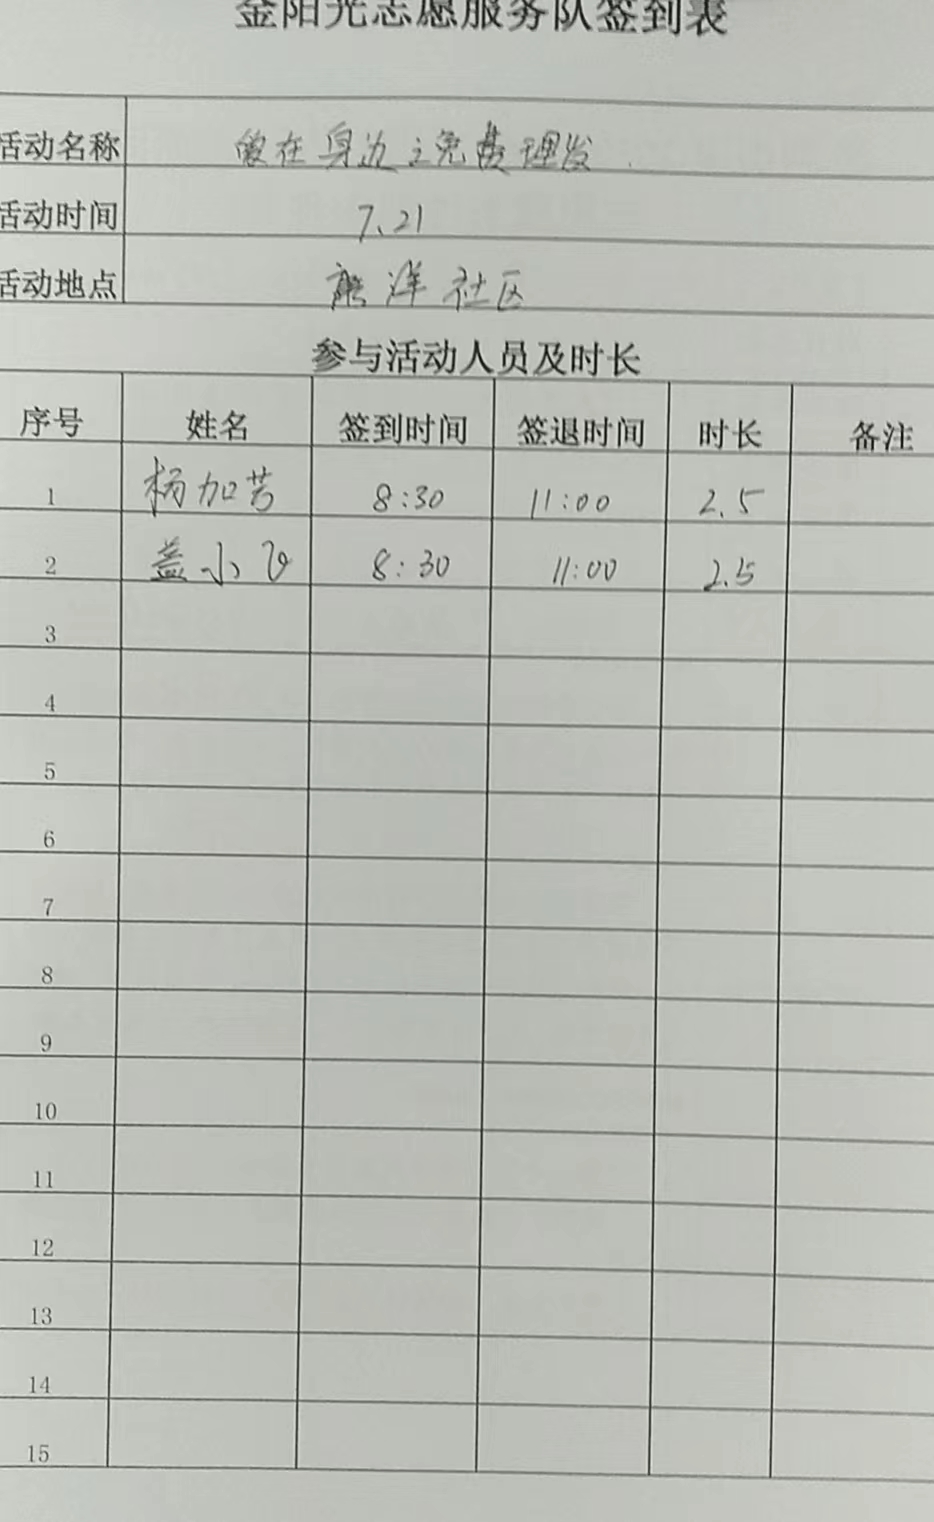 金阳光志愿服务队签到表
活动名称 在身边之免费理发
活动时间 7.21
活动地点 洋社区
参与活动人员及时长
序号 姓名 签到时间 签退时间 时长 备注
1 杨加芳 8:30 11:00 2.5
2 盖小飞 8:30 11:00 2.5
3
4
5
6
7
8
9
10
11
12
13
14
15